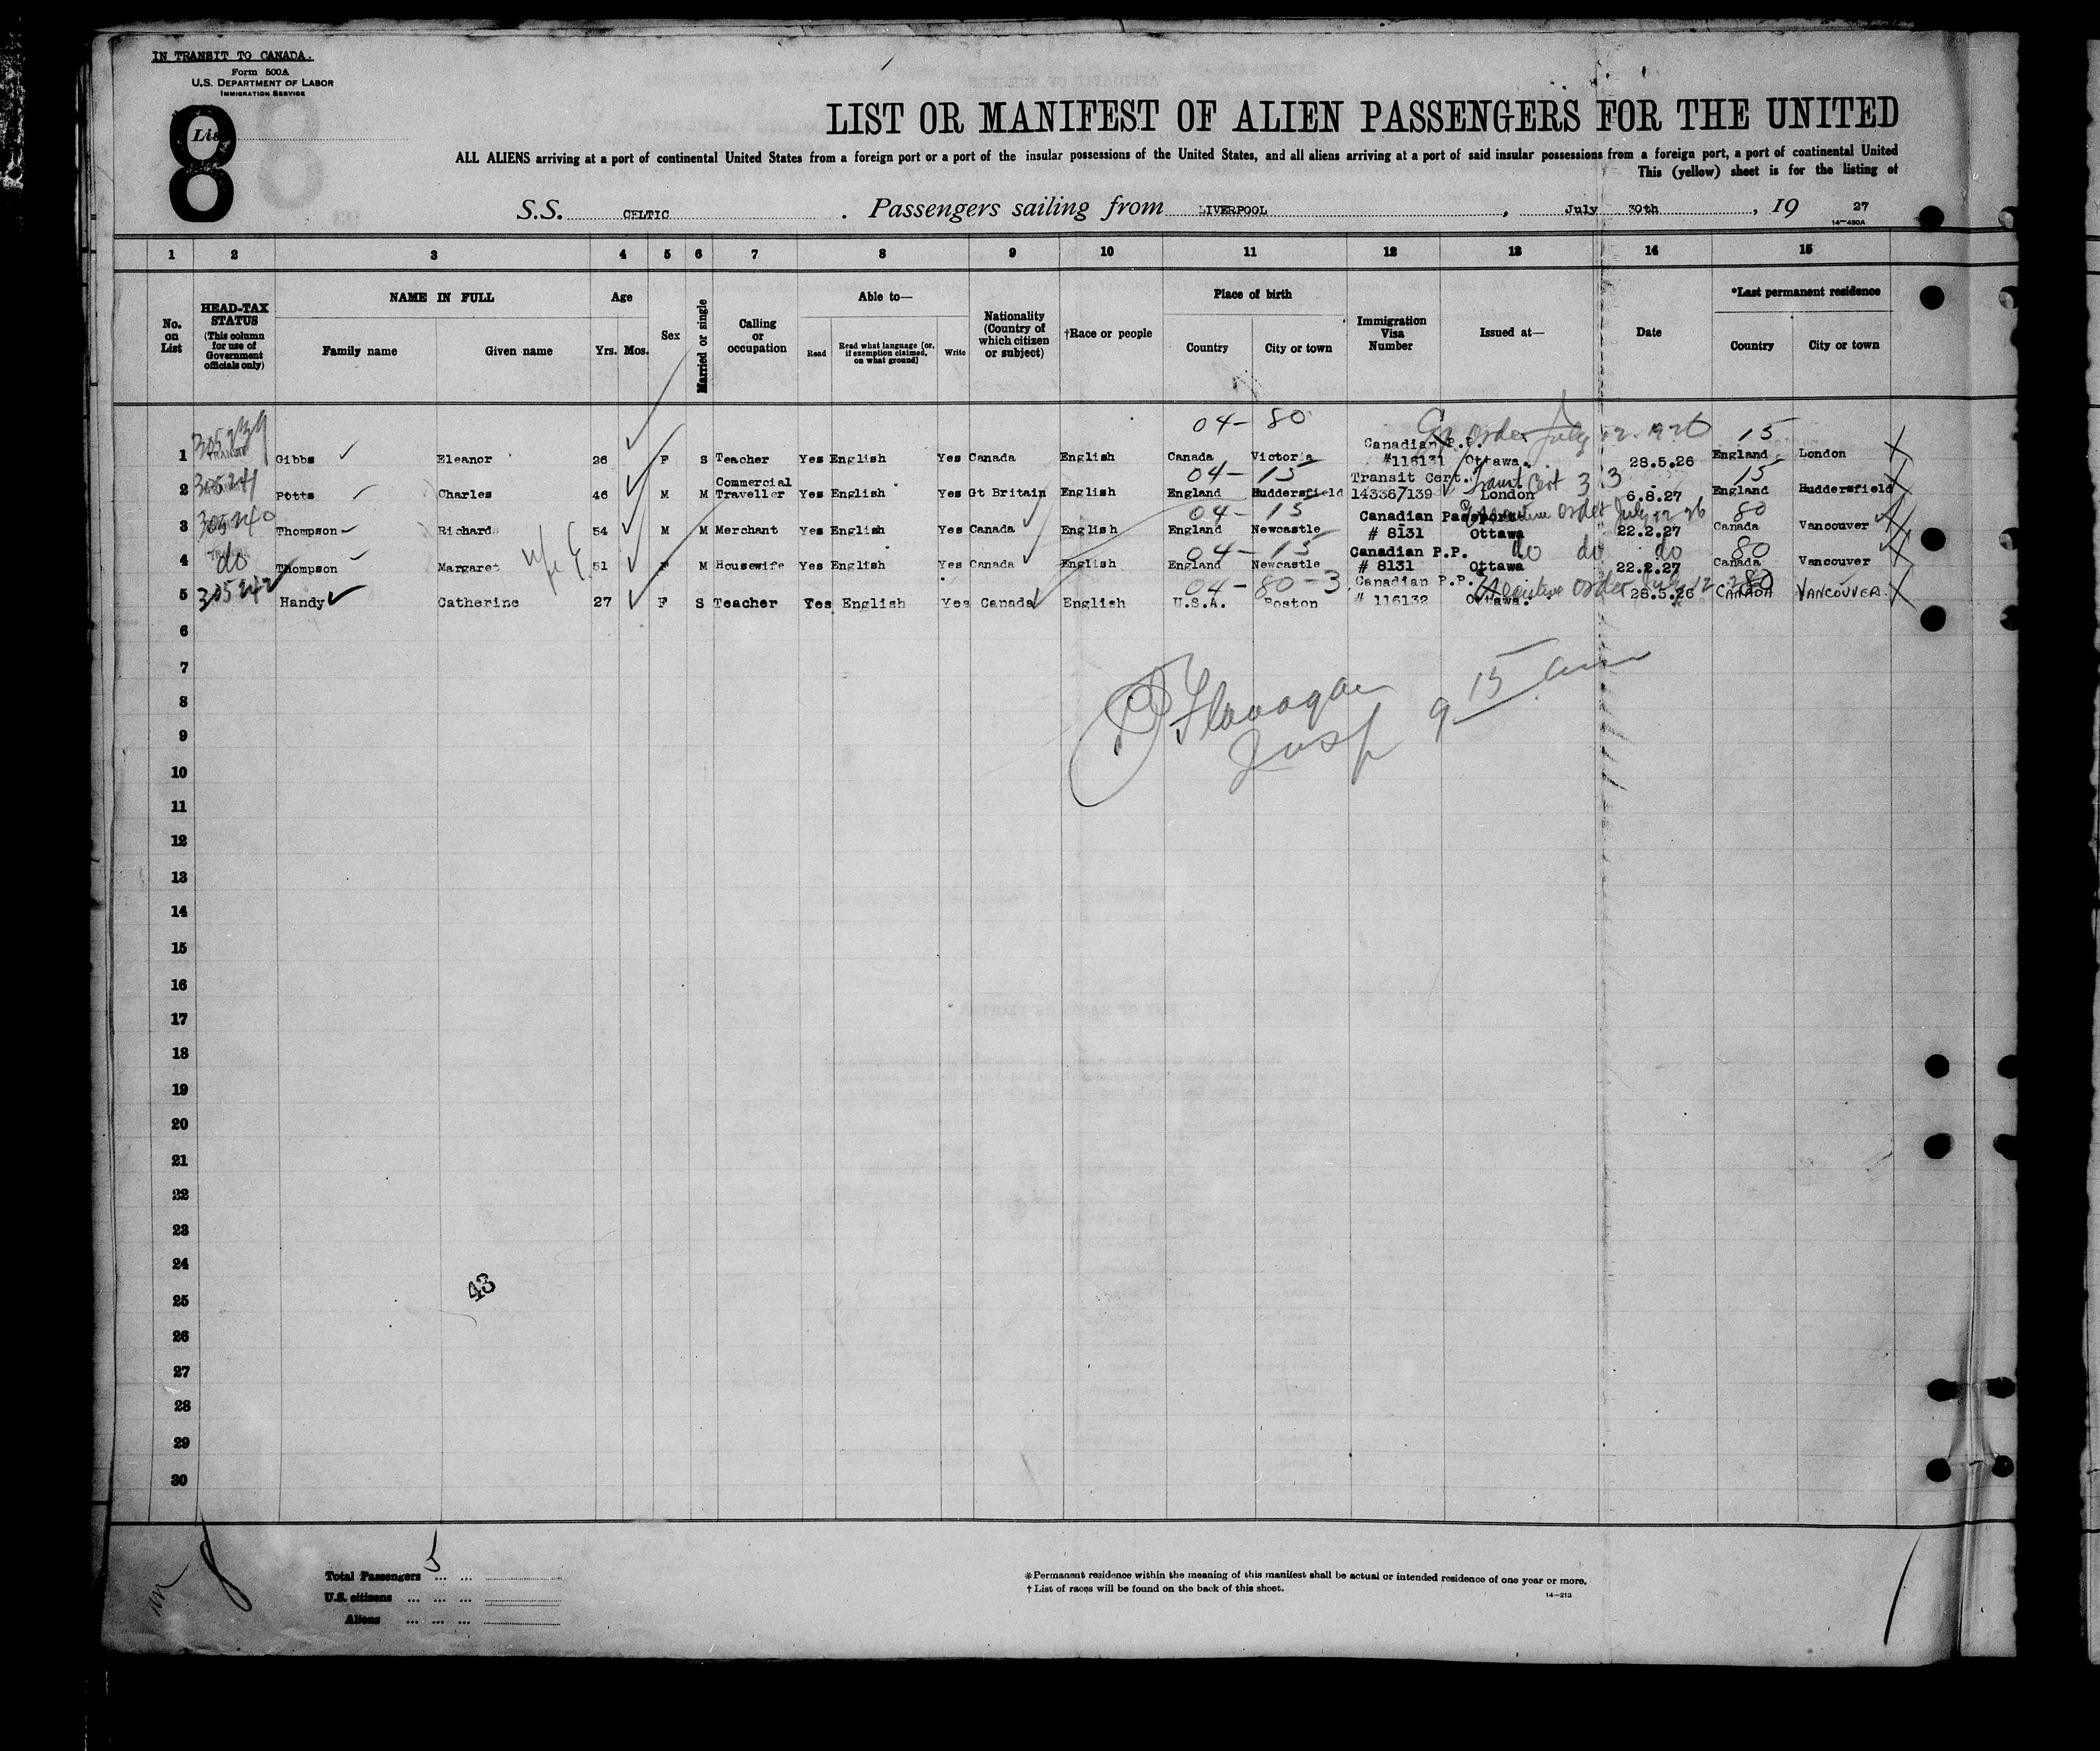 IN TRANSIT TO CANADA.
Form 500A
U.S. DEPARTMENT OF LABOR
IMMIGRATION SERVICE
8
LIST OR MANIFEST OF ALIEN PASSENGERS FOR THE UNITED
ALL ALIENS arriving at a port of continental United States from a foreign port or a port of the insular possessions of the United States, and all aliens arriving at a port of said insular possessions from a foreign port, a port of continental United
This (yellow) sheet is for the listing of
S.S. CELTIC . Passengers sailing from LIVERPOOL , July 30th , 19 27
14—430A
1 2 3 4 5 6 7 8 9 10 11 12 13 14 15
No. on List
HEAD-TAX STATUS (This column for use of Government officials only)
NAME IN FULL
Family name Given name
Age
Yrs. Mos.
Sex
Married or single
Calling or occupation
Able to—
Read
Read what language [or, if exemption claimed, on what ground]
Write
Nationality (Country of which citizen or subject)
†Race or people
Place of birth
Country City or town
Immigration Visa Number
Issued at—
Date
*Last permanent residence
Country City or town
04-80 order July 1926 15
1 305239 Gibbs Eleanor 26 F S Teacher Yes English Yes Canada English Canada Victoria Canadian P.P. #116131 Ottawa. 28.5.26 England London
04-15 Transit Cert 3.3 15
2 305241 Potts Charles 46 M M Commercial Traveller Yes English Yes Gt Britain English England Huddersfield Transit Cert. 143367/139 London 6.8.27 England Huddersfield
04-15 order July 12 26 80
3 305240 Thompson Richard 54 M M Merchant Yes English Yes Canada English England Newcastle Canadian Passport # 8131 Ottawa 22.2.27 Canada Vancouver
04-15 do do do 80
4 do Thompson Margaret 51 F M Housewife Yes English Yes Canada English England Newcastle Canadian P.P. # 8131 Ottawa 22.2.27 Canada Vancouver
04-80-3 Executive order July 12 280
5 305242 Handy Catherine 27 F S Teacher Yes English Yes Canada English U.S.A. Boston Canadian P.P. # 116132 Ottawa. 28.5.26 CANADA VANCOUVER
6
7
8
9
10
Flanagan
Insp 9 15 am
11
12
13
14
15
16
17
18
19
20
21
22
23
24
43
25
26
27
28
29
30
Total Passengers ... ... 5
U.S. citizens ... ... ...
Aliens ... ... ...
*Permanent residence within the meaning of this manifest shall be actual or intended residence of one year or more.
†List of races will be found on the back of this sheet.
14—213